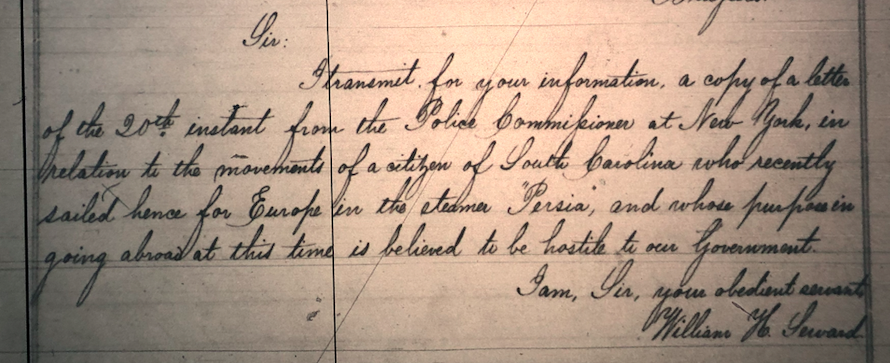 Sir:
I transmit, for your information, a copy of a letter
of the 20th instant from the Police Commissioner at New York, in
relation to the movements of a citizen of South Carolina who recently
sailed hence for Europe in the steamer "Persia", and whose purpose in
going abroad at this time is believed to be hostile to our Government.
I am, Sir, your obedient servant
William H. Seward